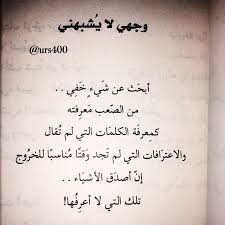 وجهي لا يُشبهني
@urs400
أبحَث عن شَيءٍ خَفِي . .
من الصّعب مَعرِفته
كمِعرفَة الكلمَات التي لم تُقال
والاعترَافات التي لم تَجد وَقتًا مُناسبًا للخرُوج
إنّ أصدَق الأشيَاء . .
تلك التي لا أعرِفُها!